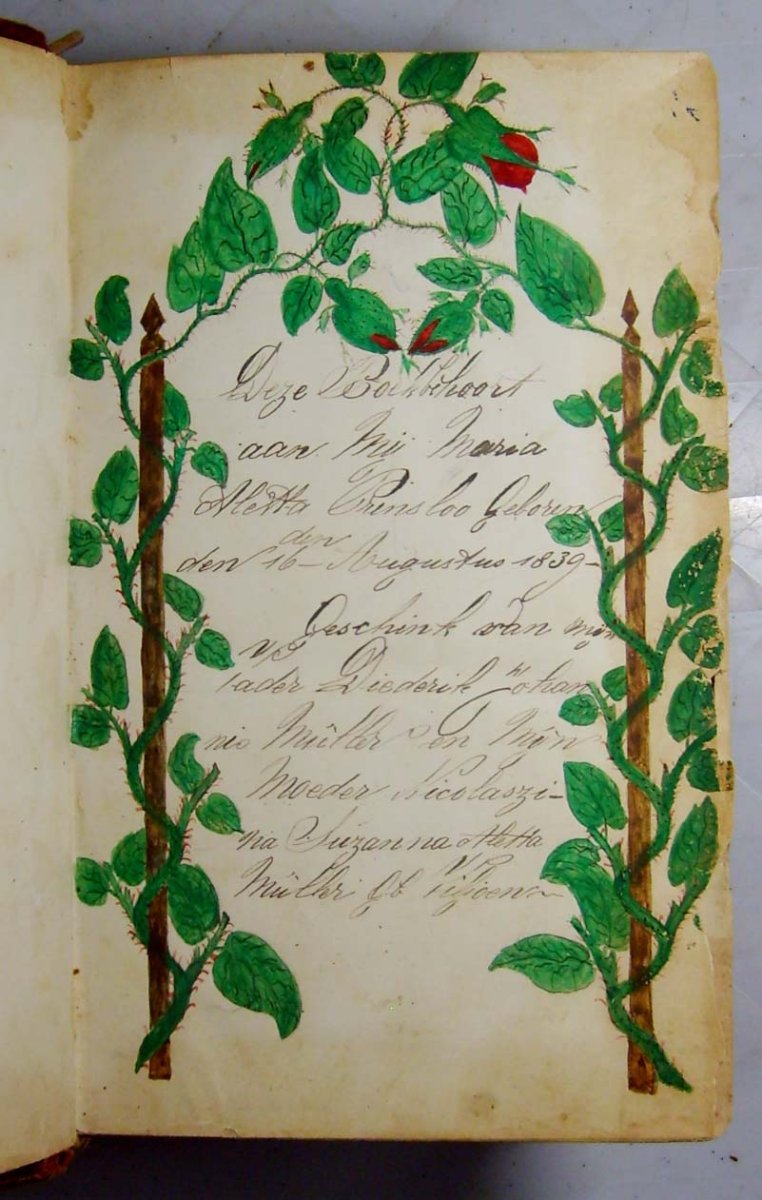 Deze Boek behoort
aan Mij Maria
Aletta Prinsloo Geboren
den
den 16 - Augustus 1839 -
Geschink van mijn
Vader Diederik Johan
nis Müller en Mijn
Moeder Nicolaszi-
na Suzanna Aletta
Müller Gb Viljoen